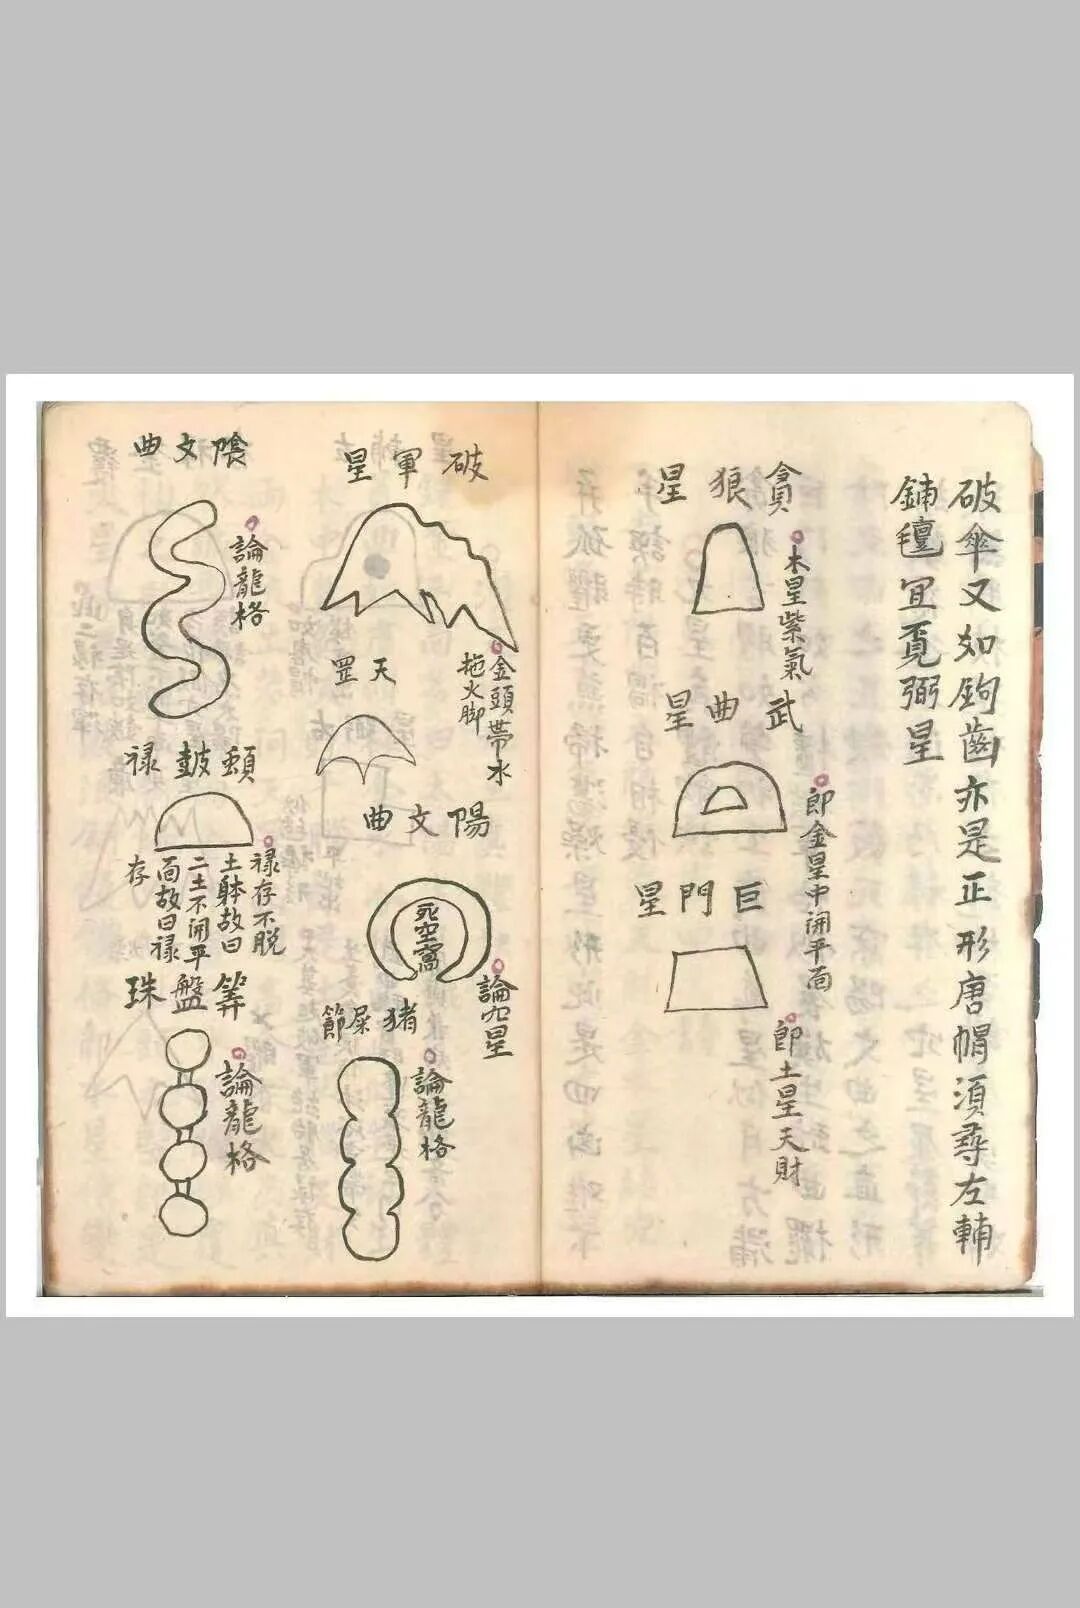 破傘又如鉤齒亦是正形唐帽須尋左輔
鋪氊宜覓弼星
貪狼星
木星紫氣
武曲星
即金星中開平面
巨門星
即土星天財
破軍星
金頭帶水
拖火脚
天罡
陽文曲
死空窩
論九星
猪屎節
論龍格
陰文曲
論龍格
皷祿
祿存不脱
土躰故曰
二土不開平
面故曰禄
存
筭盤珠
論龍格